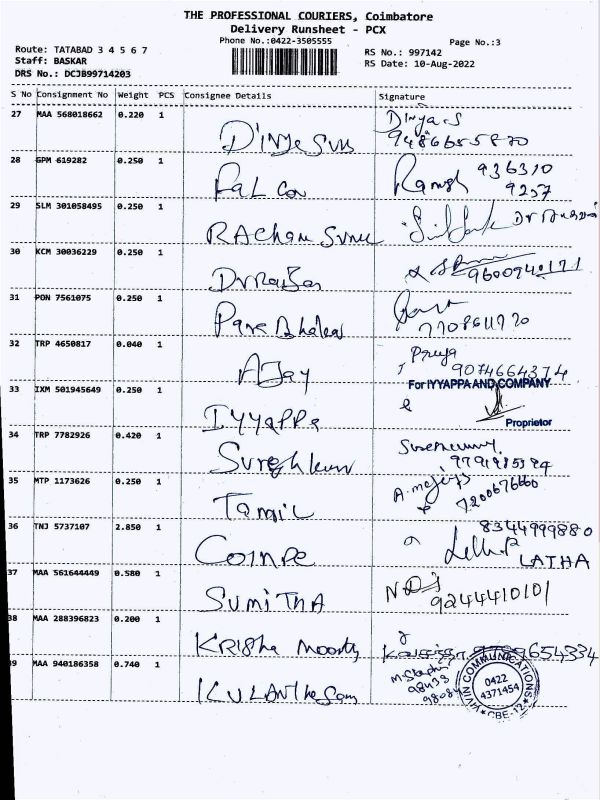 THE PROFESSIONAL COURIERS, Coimbatore
Delivery Runsheet - PCX
Phone No.:0422-3505555
Page No.:3
Route: TATABAD 3 4 5 6 7
Staff: BASKAR
DRS No.: DCJB99714203
RS No.: 997142
RS Date: 10-Aug-2022
S No Consignment No Weight PCS Consignee Details Signature
27 MAA 568018662 0.220 1
Divya S
9486655870
28 GPM 619282 0.250 1
Ramesh 936310
9257
29 SLM 301058495 0.250 1
30 KCM 30036229 0.250 1
9600940171
31 PON 7561075 0.250 1
7708611720
32 TRP 4650817 0.040 1 AJay
Priya
9074664374
33 IXM 501945649 0.250 1 IYYAPPA
For IYYAPPA AND COMPANY
Proprietor
34 TRP 7782926 0.420 1
35 MTP 1173626 0.250 1 Tamil
7200676660
36 TNJ 5737107 2.850 1
8344999880
LATHA
37 MAA 561644449 0.580 1 SUMITHA
9244410101
38 MAA 288396823 0.200 1 KRISHa Moorthy
9789654334
39 MAA 940186358 0.740 1
M. Stephin
98433
VAVIN COMMUNICATIONS
0422
4371454
CBE-12